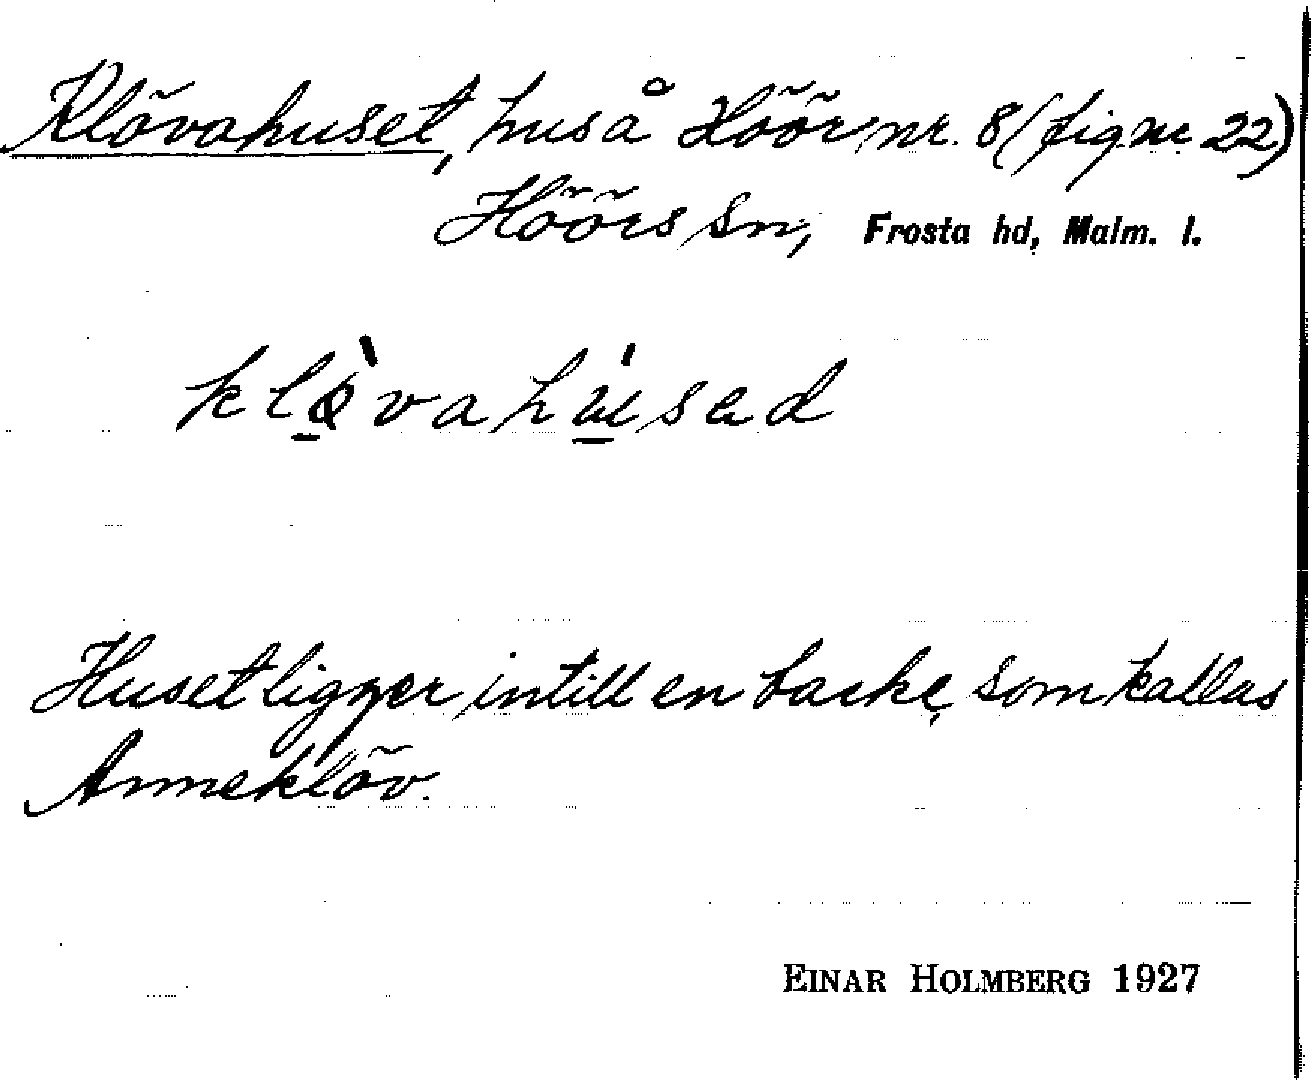 Klövahuset, hus å Höör nr. 8 (fig nr 22)
Höörs sn, Frosta hd, Malm. l.
klø̠̀vahu̠̍sad
Huset ligger intill en backe, som kallas
Anneklöv.
EINAR HOLMBERG 1927